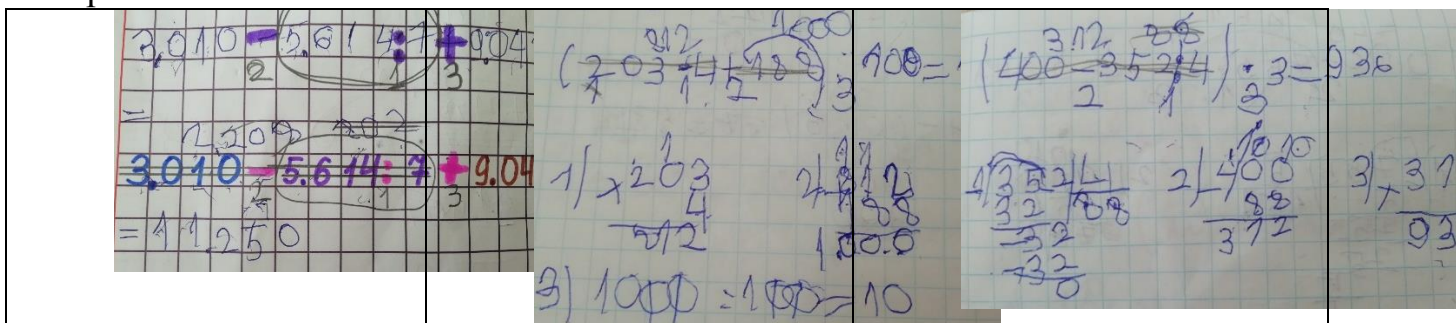 3.010 - 5.614 : 7 + 9.04
2 1 3
=
2.208 802
3.010 - 5.614 : 7 + 9.04
2 1 3
= 11.250
812 1000
(203 · 4 + 188) : 100 =
1 2 3
1) × 203
4
812
2) 812
188
1000
3) 1000 : 100 = 10
312 88
(400 - 352 : 4) · 3 = 936
2 1 3
1) 352 4
32 88
32
32
0
2) 400
88
312
3) × 31
93